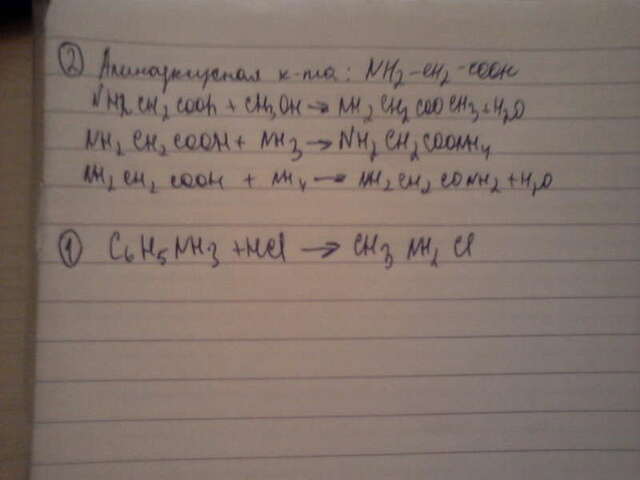 ② Аминоуксусная к-та: NH2-CH2-COOH
NH2CH2COOH + CH3OH → NH2CH2COOCH3 + H2O
NH2CH2COOH + NH3 → NH2CH2COONH4
NH2CH2COOH + NH4 → NH2CH2CONH2 + H2O
① C6H5NH3 + HCl → CH3NH2Cl